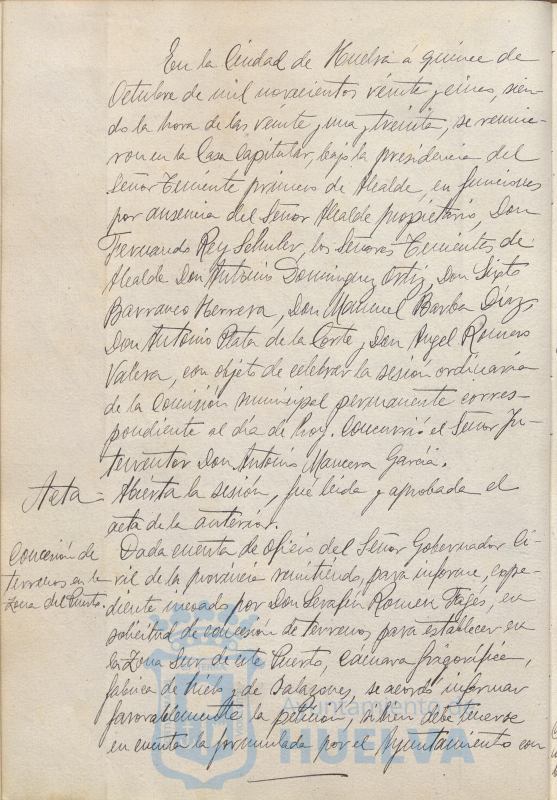 En la Ciudad de Huelva á quince de
Octubre de mil novecientos veinte y cinco, sien-
do la hora de las veinte y una y treinta, se reunie-
ron en la Casa Capitular, bajo la presidencia del
Señor Teniente primero de Alcalde, en funciones
por ausencia del Señor Alcalde propietario, Don
Fernando Rey Schuler, los Señores Tenientes de
Alcalde Don Antonio Dominguez Ortiz, Don Sixto
Barranco Herrera, Don Manuel Barba Díaz,
Don Antonio Plata de la Corte y Don Angel Romero
Valera, con objeto de celebrar la sesión ordinaria
de la Comisión municipal permanente corres-
pondiente al día de hoy. Concurrió el Señor In-
terventor Don Antonio Mancera García.
Acta - Abierta la sesión, fué leida y aprobada el
acta de la anterior.
Concesión de
terrenos en la
Zona del Puerto.
Dada cuenta de oficio del Señor Gobernador Ci-
vil de la provincia remitiendo, para informe, expe-
diente incoado por Don Serafín Romeu Fagés, en
solicitud de concesión de terrenos para establecer en
la Zona Sur de este Puerto, Cámara frigorífica,
fábrica de hielo y de Salazones, se acordó informar
favorablemente la petición, si bien debe tenerse
en cuenta la formulada por el Ayuntamiento con
Ayuntamiento de
HUELVA